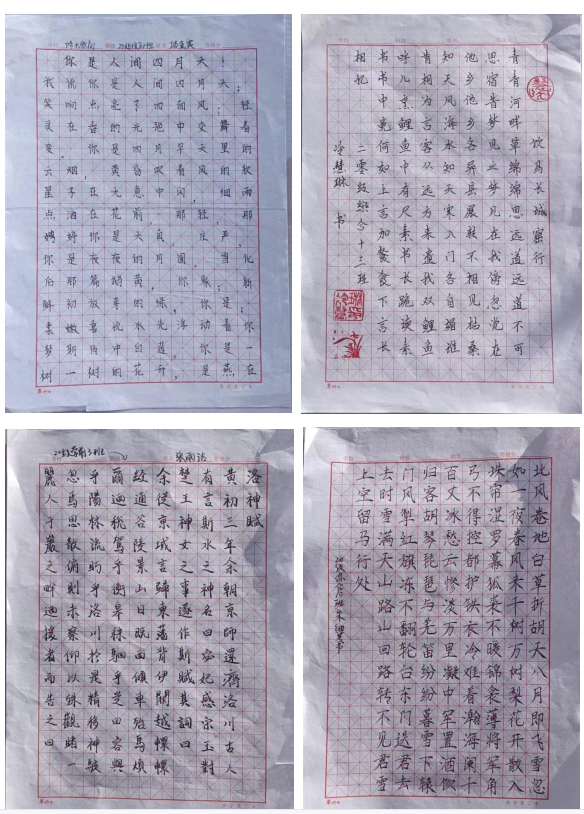 你是人间四月天!
我说你是人间四月天;
笑响点亮了四面风;轻
灵在春的光艳中交舞着
变。你是四月早天里的
云烟,黄昏吹着风的软
星子在无意中闪,细雨
点洒在花前。那轻,那
娉婷你是天真,庄严,
你是夜夜的月圆。雪化
后那篇鹅黄,你像;新
鲜初放芽的绿,你是;
柔嫩喜悦水光浮动着你
梦期待中白莲。你是一
树一树的花开,是燕在
饮马长城窟行
青青河畔草绵绵思远道远道不可
思宿昔梦见之梦见在我旁忽觉在
他乡他乡各异县展转不相见枯桑
知天风海水知天寒入门各自媚谁
肯相为言客从远方来遗我双鲤鱼
呼儿烹鲤鱼中有尺素书长跪读素
书书中竟何如上言加餐食下言长
相忆
十三班
冷慧琳 书
张雨洁
洛神賦
黄初三年余朝京師還濟洛川古人
有言斯水之神名曰宓妃感宗玉對
楚王神女之事遂作斯賦其詞曰
余從京域言歸東藩背伊闕越轘轅
經通谷陵景山日既西傾車殆馬煩
爾迺税駕乎蘅皋秣駟乎芝田容與
乎陽林流眄乎洛川於是精移神駭
忽焉思散俯則未察仰以殊觀睹一
麗人于巖之畔迺援者而告之曰
北风卷地白草折胡天八月即飞雪忽
如一夜春风来千树万树梨花开散入
珠帘湿罗幕狐裘不暖锦衾薄将军角
弓不得控都护铁衣冷难着瀚海阑干
百丈冰愁云惨淡万里凝中军置酒饮
归客胡琴琵琶与羌笛纷纷暮雪下辕
门风掣红旗冻不翻轮台东门送君去
去时雪满天山路山回路转不见君雪
上空留马行处